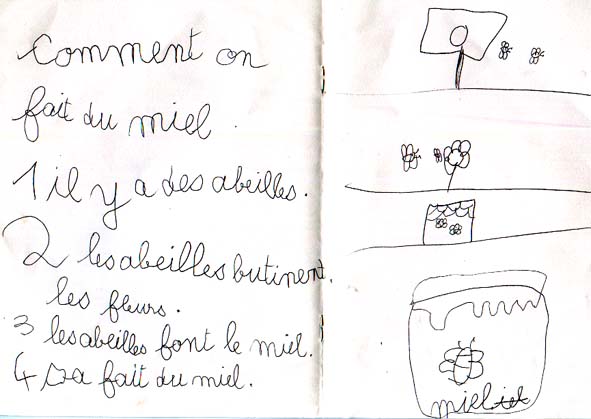 comment on
fait du miel.
1 il y a des abeilles.
2 les abeilles butinent
les fleurs.
3 les abeilles font le miel.
4 ça fait du miel.
miel